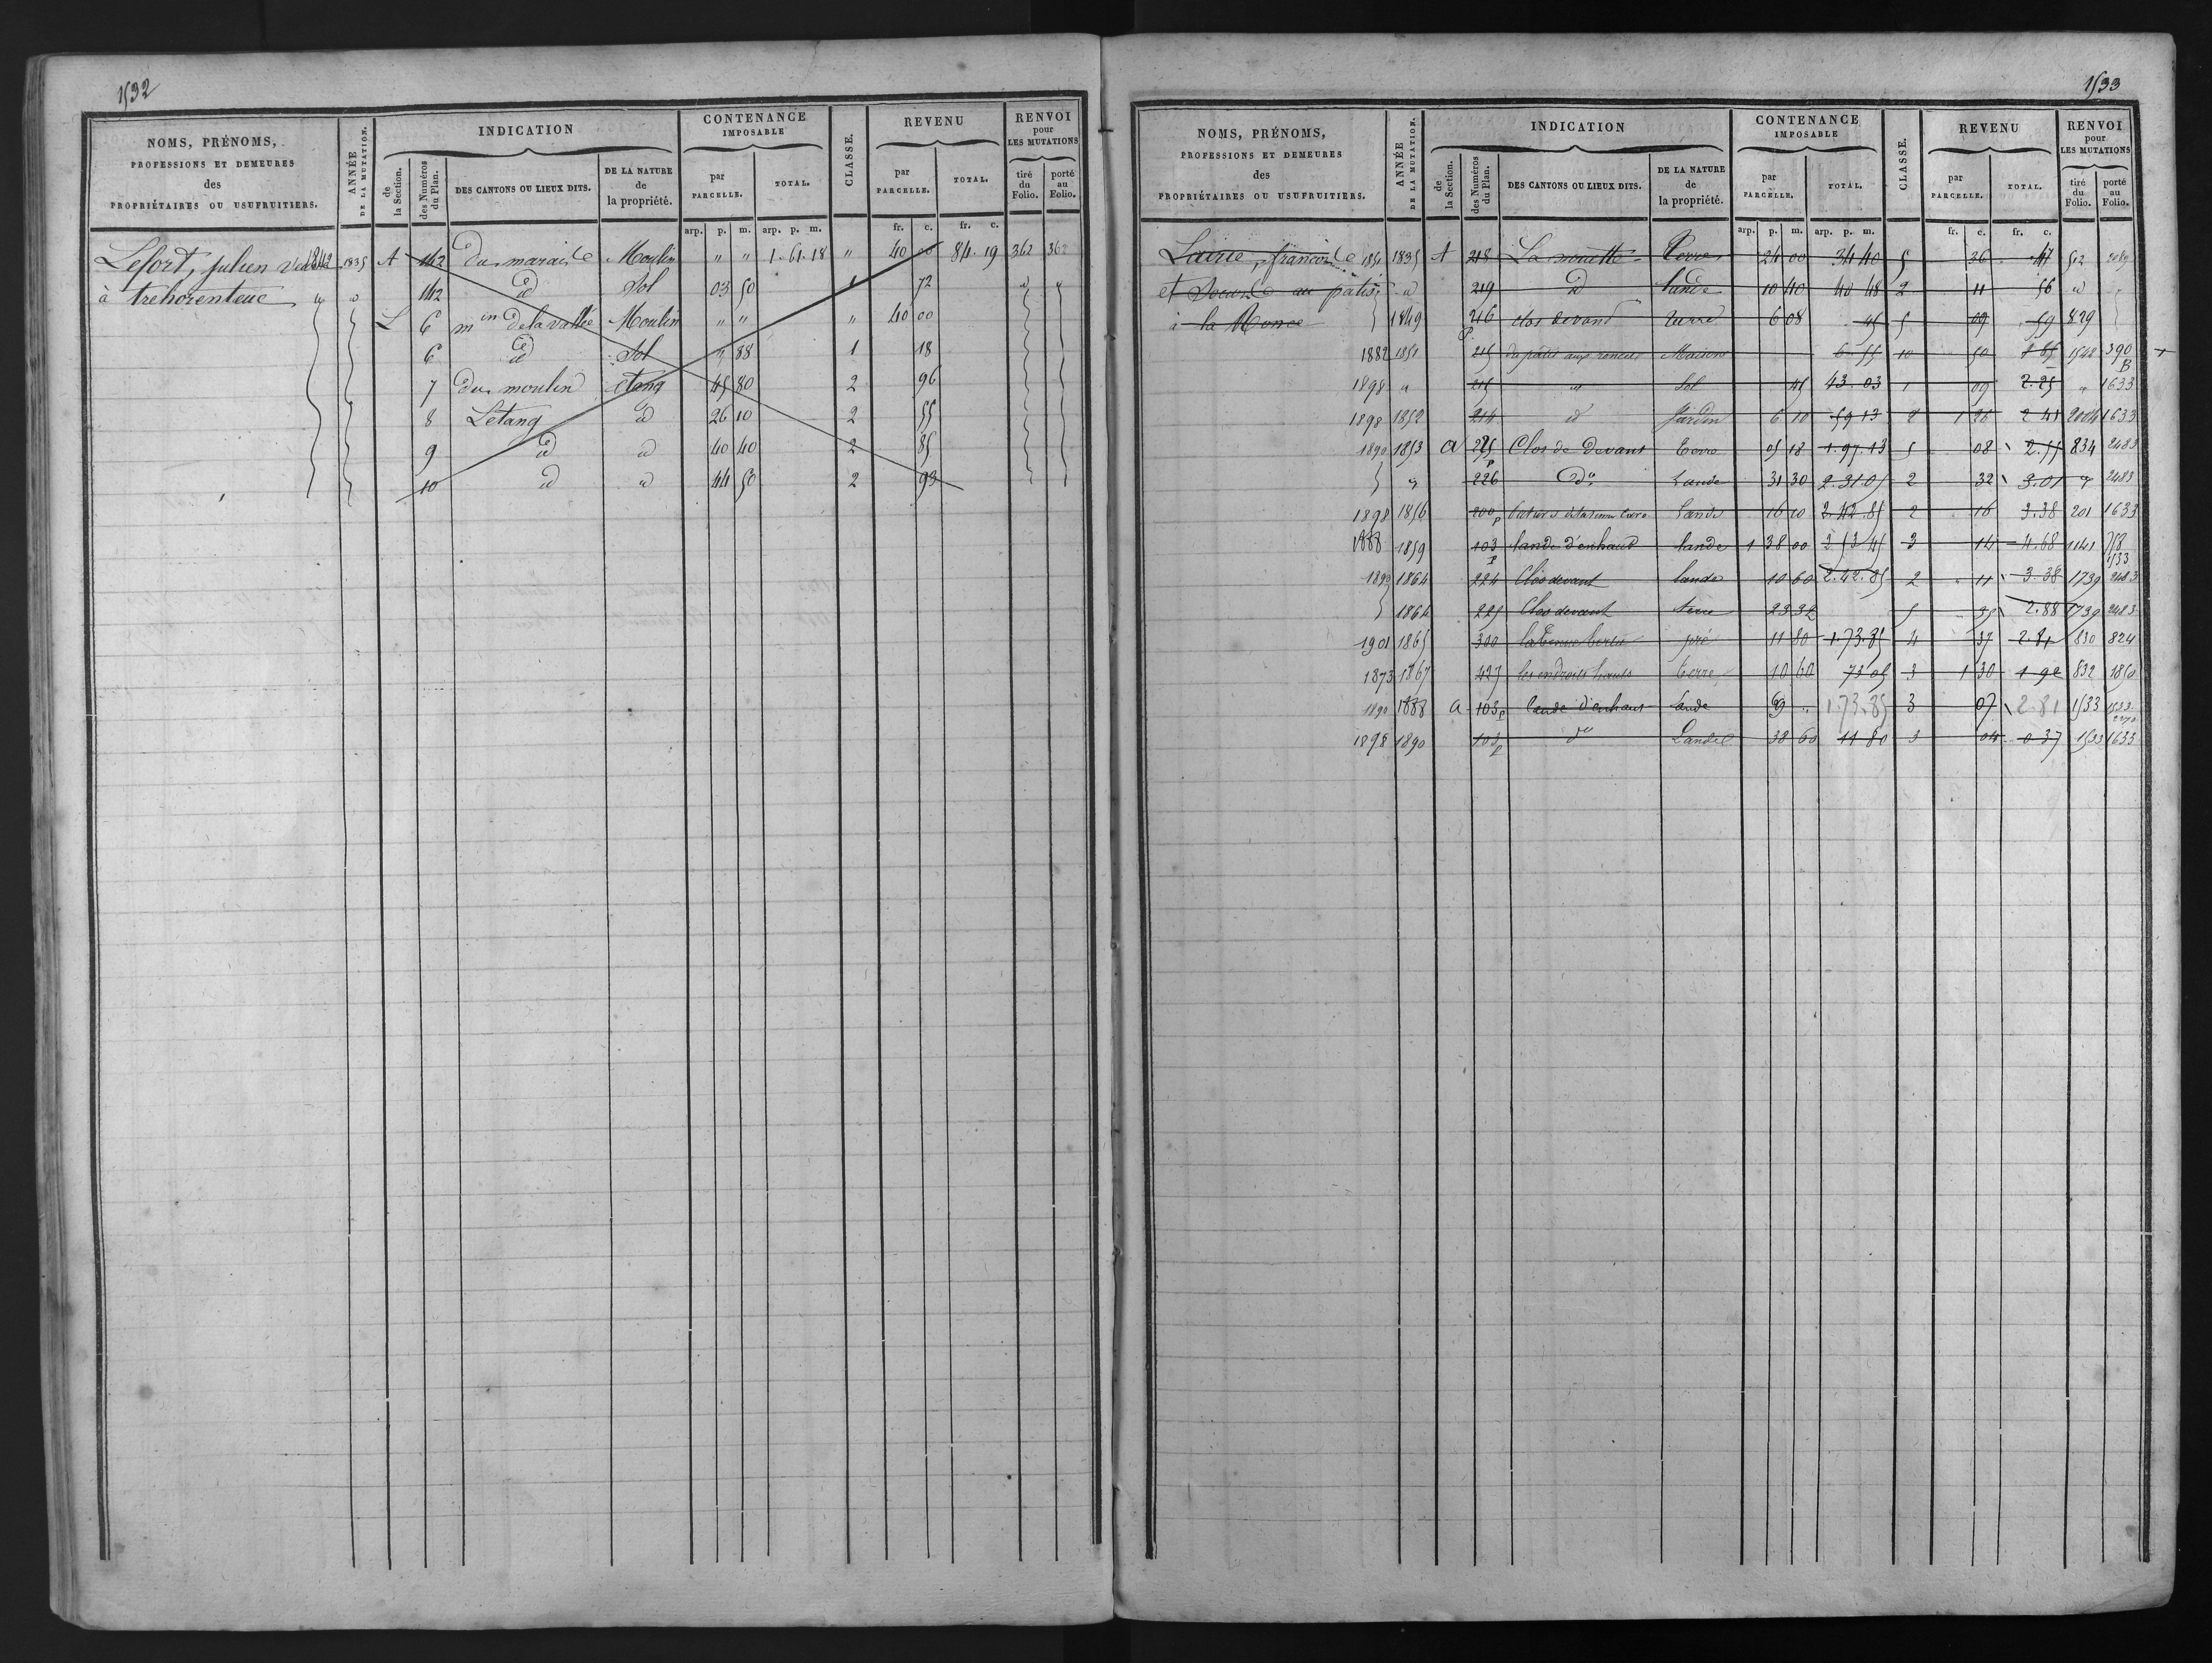 1532
NOMS, PRÉNOMS,
PROFESSIONS ET DEMEURES
des
PROPRIÉTAIRES OU USUFRUITIERS.
ANNÉE
DE LA MUTATION.
INDICATION
de
la Section.
des Numéros
du Plan.
DES CANTONS OU LIEUX DITS.
DE LA NATURE
de
la propriété.
CONTENANCE
IMPOSABLE
par
PARCELLE.
TOTAL.
CLASSE.
REVENU
par
PARCELLE.
TOTAL.
RENVOI
pour
LES MUTATIONS
tiré
du
Folio.
porté
au
Folio.
arp. p. m. arp. p. m. fr. c. fr. c.
Lefort, julien 1842 1835 A 142 Du marais Moulin " " 1. 61. 18 " 40 00 84. 19 362 362
à trehorenteuc id 142 id Sol 03 50 1 72 id
L 6 min de la vallée Moulin " " " 40 00
6 id Sol " 88 1 18
7 Du moulin Etang 45 80 2 96
8 Letang id 26 10 2 55
9 id id 40 40 2 85
10 id id 44 50 2 93
1533
NOMS, PRÉNOMS,
PROFESSIONS ET DEMEURES
des
PROPRIÉTAIRES OU USUFRUITIERS.
ANNÉE
DE LA MUTATION.
INDICATION
de
la Section.
des Numéros
du Plan.
DES CANTONS OU LIEUX DITS.
DE LA NATURE
de
la propriété.
CONTENANCE
IMPOSABLE
par
PARCELLE.
TOTAL.
CLASSE.
REVENU
par
PARCELLE.
TOTAL.
RENVOI
pour
LES MUTATIONS
tiré
du
Folio.
porté
au
Folio.
arp. p. m. arp. p. m. fr. c. fr. c.
Lairie, françois 1835 A 218 La nouette Terre 24 00 34 40 5 36 47 512
et Soeurs au patis id 219 id lande 10 40 40 48 2 11 56 id
à la Ronce 1849 216 P clos devant terre 6 08 45 5 09 59 829
1882 1851 215 du patis aux ronces Maison 6 55 10 50 1 85 1548 390 B
1898 " 215 " Sol 45 43. 03 1 09 2. 25 " 1633
1898 1852 214 id Jardin 6 10 59 13 2 1 26 2 41 2004 1633
1890 1853 A 225 P Clos de Devant terre 05 18 1. 97. 13 5 08 2. 55 834 2483
" 226 do Lande 31 30 2. 31 05 2 32 3. 01 " 2483
1898 1856 200 p lande 16 10 2. 42. 85 2 16 3. 38 201 1633
1888 1859 103 P lande d'enhaut lande 1 38 00 2 53 45 3 14 4. 68 1141 1533
1890 1864 224 Clos devant lande 10 60 2. 42. 85 2 11 3. 38 1739 2483
1864 225 Clos devant terre 23 32 5 35 2. 88 1739 2483
1901 1865 300 pré 11 80 1. 73. 85 4 37 2. 81 830 824
1873 1867 427 les endroits hauts terre 10 60 73 05 3 1 30 1 92 832 1850
1890 1888 a 103 p lande d'enhaut lande 69 " 1. 73. 85 3 07 2. 81 1533 1533
1898 1890 103 p do Lande 38 60 11 80 3 04 0 37 1533 1633